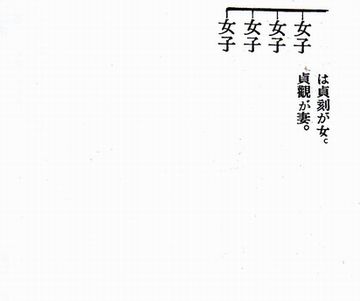 女子
は貞刻が女。
貞觀が妻。
女子
女子
女子